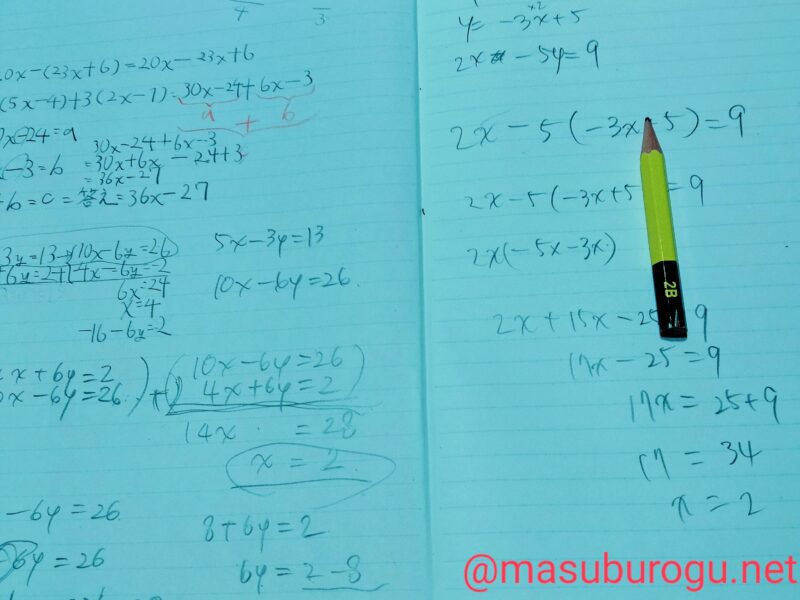 4
3
20x-(23x+6)=20x-23x+6
(5x-4)+3(2x-1)=30x-24+6x-3
a + b
x-24=a
30x-24+6x-3
x-3=b
=30x+6x-24+3
=36x-27
+b=c=答え=36x-27
3y=13→10x-6y=26
+6y=2+(4x-6y=-2
6x=24
x=4
-16-6y=2
5x-3y=13
10x-6y=26.
x+6y=2
x-6y=26.
10x-6y=26
+) 4x+6y=2
14x. =28
x=2.
-6y=26
6y=26
8+6y=2
6y=2-8
×2
y=-3x+5
2x-5y=9
2x-5(-3x+5)=9
2x-5(-3x+5 =9
2x(-5x-3x.)
2x+15x-25 9
17x-25=9
17x=25+9
17=34
x=2
2B
@masuburogu.net